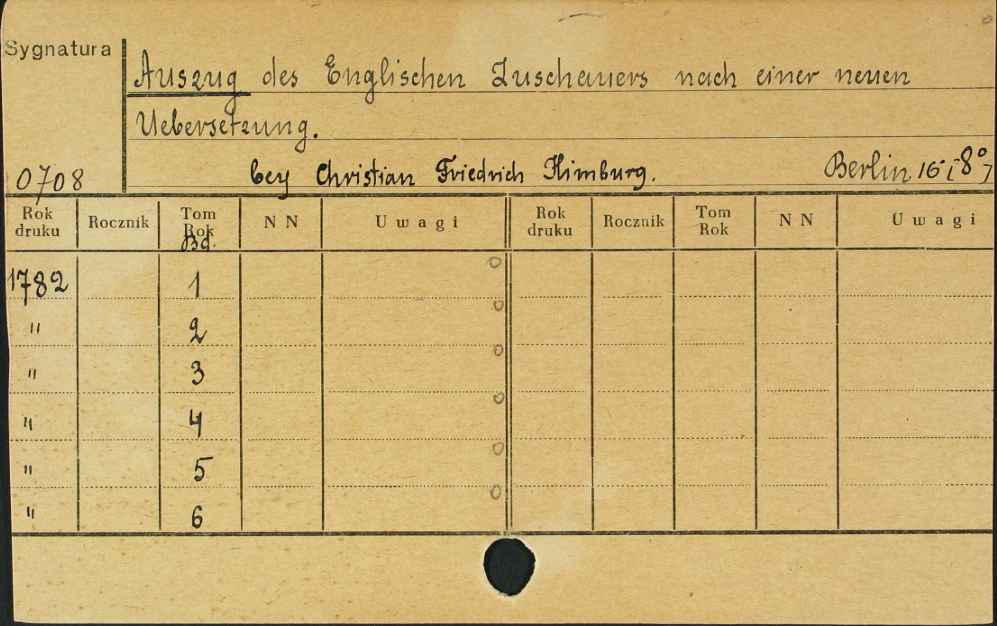 Sygnatura
Auszug des Englischen Zuschauers nach einer neuen
Uebersetzung.
0708 bey Christian Friedrich Himburg. Berlin 16- 8°
Rok druku Rocznik Tom Rok Bd. N N Uwagi Rok druku Rocznik Tom Rok N N Uwagi
1782 1
" 2
" 3
" 4
" 5
" 6